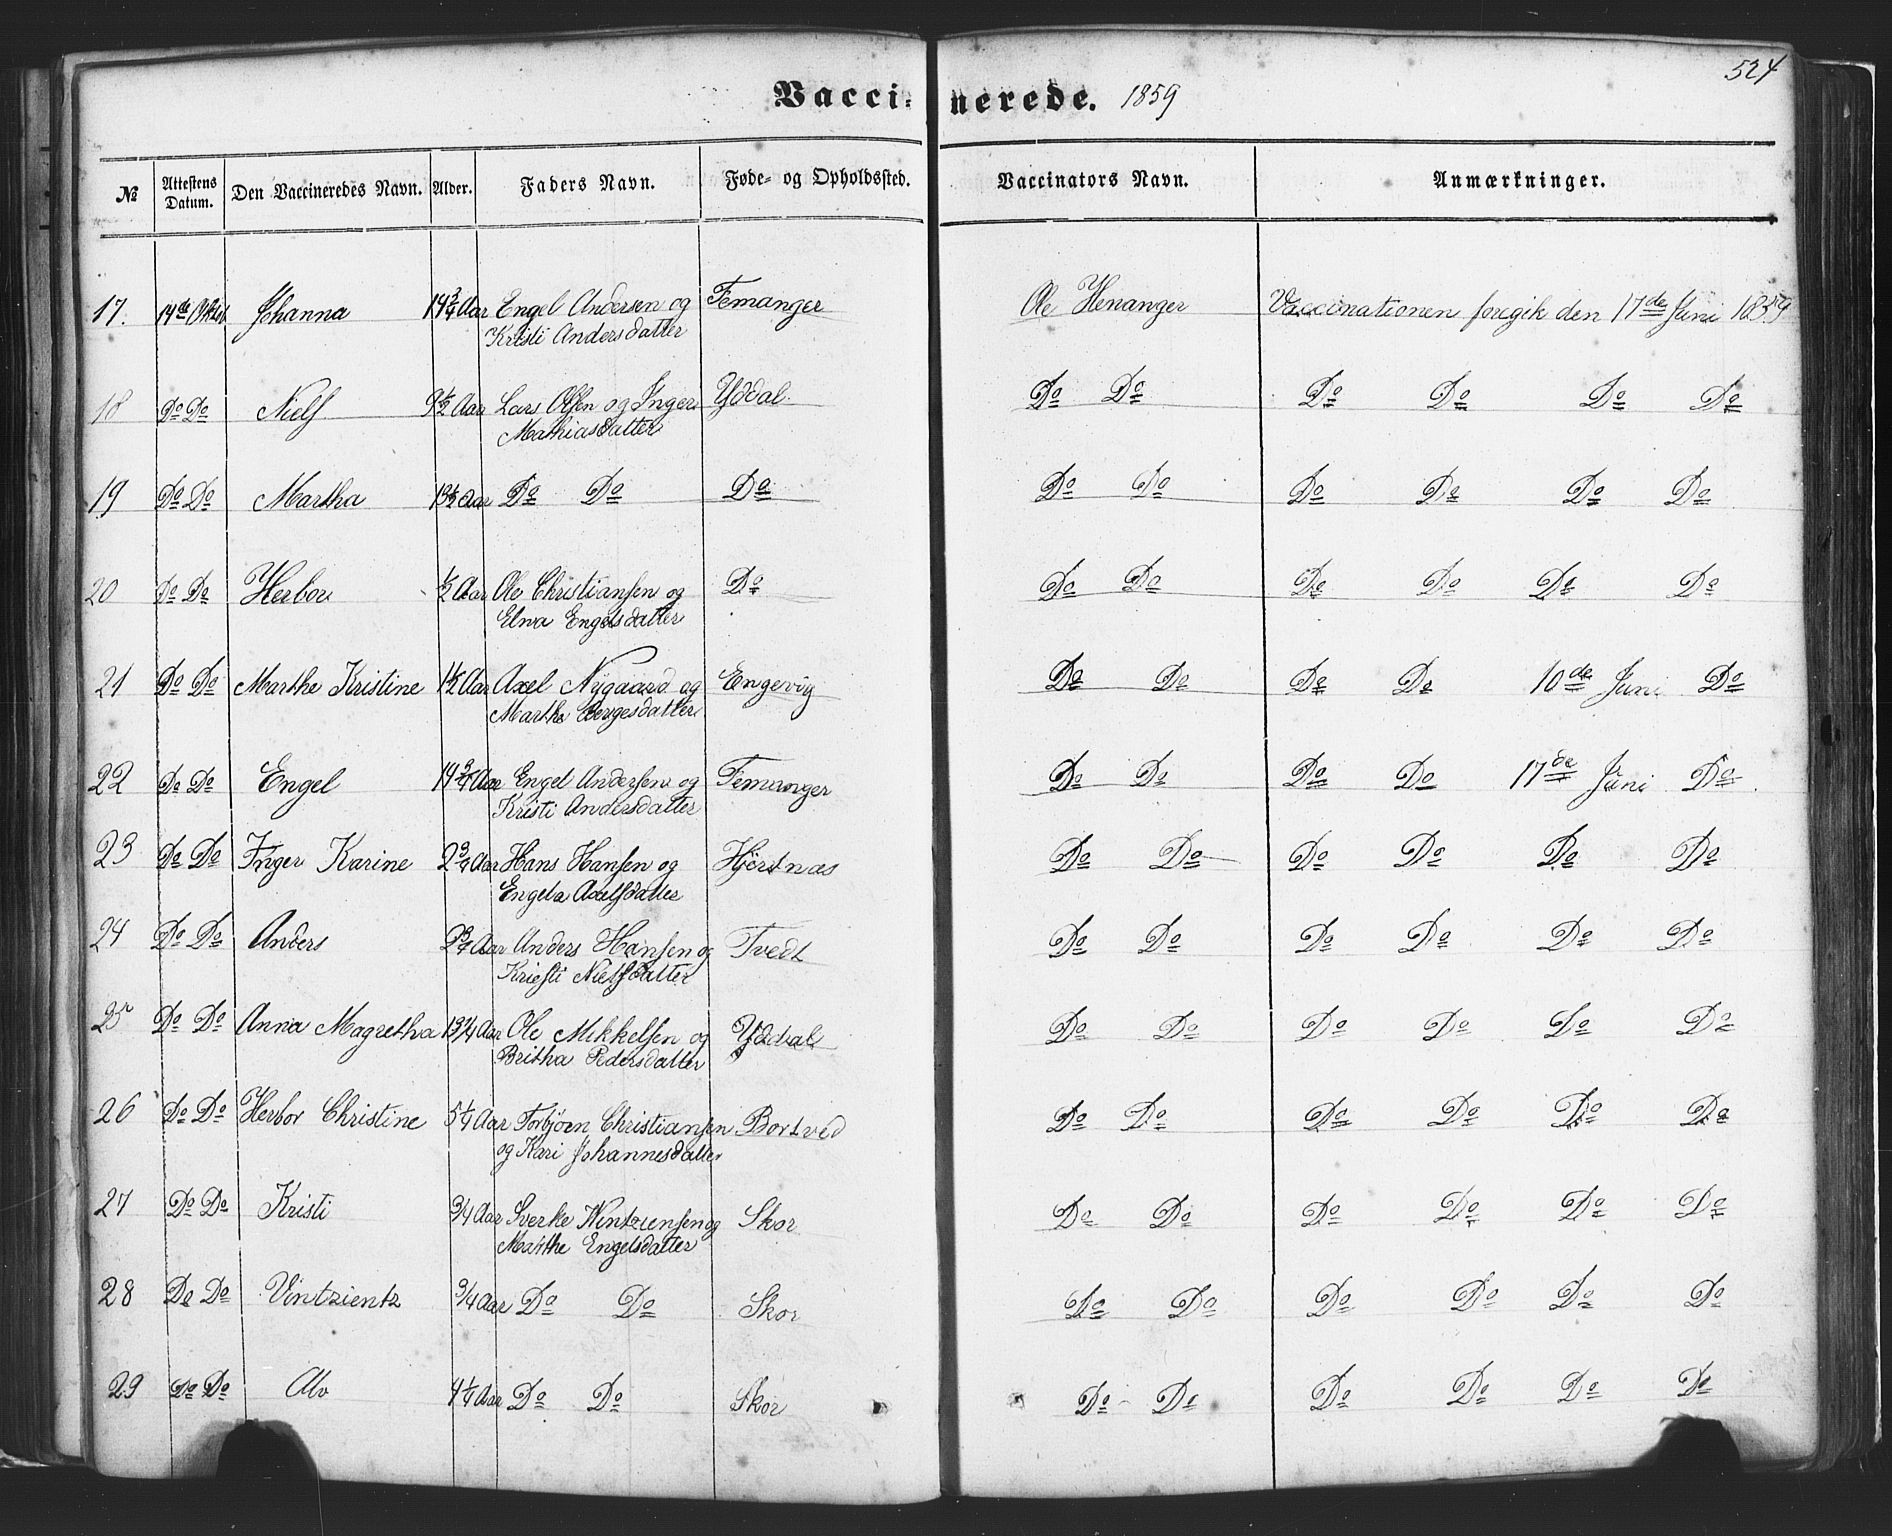 524
Vaccinerede. 1859
№ Attestens Datum. Den Vaccineredes Navn. Alder. Faders Navn. Føde- og Opholdssted. Vaccinators Navn. Anmærkninger.
17. 14de Johanna 14 3/4 Aar Engel Andersen og Femanger Ole Henanger Vaccinationen foregik den 17de Juni 1859
Kristi Andersdatter
18 Do Do Niels 9 1/2 Aar Lars Olsen og Inger Yddal Do Do Do Do Do Do
Mathiasdatter
19 Do Do Martha 13 1/2 Aar Do Do Do Do Do Do Do Do Do
20 Do Do Herbor 1/2 Aar Ole Christiansen og Do Do Do Do Do Do Do
Elna Engelsdatter
21 Do Do Marthe Kristine 1 1/2 Aar Axel Nygaard og Engevig Do Do Do Do 10de Juni Do
Marthe Børgesdatter
22 Do Do Engel 14 3/4 Aar Engel Andersen og Femanger Do Do Do Do 17de Juni Do
Kristi Andersdatter
23 Do Do Inger Karine 2 3/4 Aar Hans Hansen og Hjortnæs Do Do Do Do Do Do
Engela Axelsdatter
24 Do Do Anders 2 3/4 Aar Anders Hansen og Tvedt Do Do Do Do Do Do
Kriesti Nielsdatter
25 Do Do Anna Magretha 13 1/4 Aar Ole Mikkelsen og Yddal Do Do Do Do Do Do
Britha Pedersdatter
26 Do Do Herbor Christine 5 1/4 Aar Torbjøen Christiansen Bortved Do Do Do Do Do Do
og Kari Johannesdatter
27 Do Do Kristi 3/4 Aar Sverke og Skor Do Do Do Do Do Do
Marthe Engelsdatter
28 Do Do Vintzientz 3/4 Aar Do Do Skor Do Do Do Do Do Do
29 Do Do Alv 4 1/4 Aar Do Do Skor Do Do Do Do Do Do